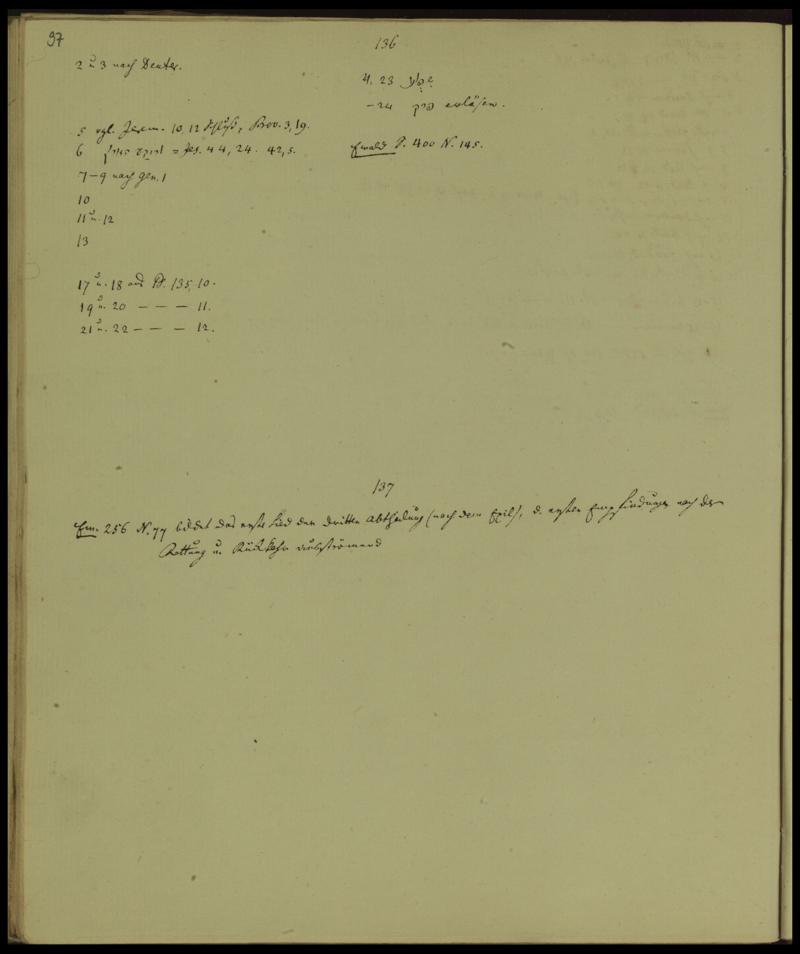 97
136
2 u 3 nach Deuter.
4, 23 שפל
– 24 פרק erlösen.
5 vgl. Jerem. 10, 12 Schluß, Prov. 3, 19.
6 = Jes. 44, 24. 42, 5.
Ewald S. 400 N. 145.
7–9 nach Gen. 1
10
11 u. 12
13
17 u. 18 aus Ps. 135, 10.
19 u. 20 – – – 11.
21 u. 22 – – – 12.
137
Ew. 256 N. 77 bildet das erste Lied der dritten Abtheilung (nach dem Exil), d. ersten Empfindungen nach der
Rettung u. Rückkehr ausströmend